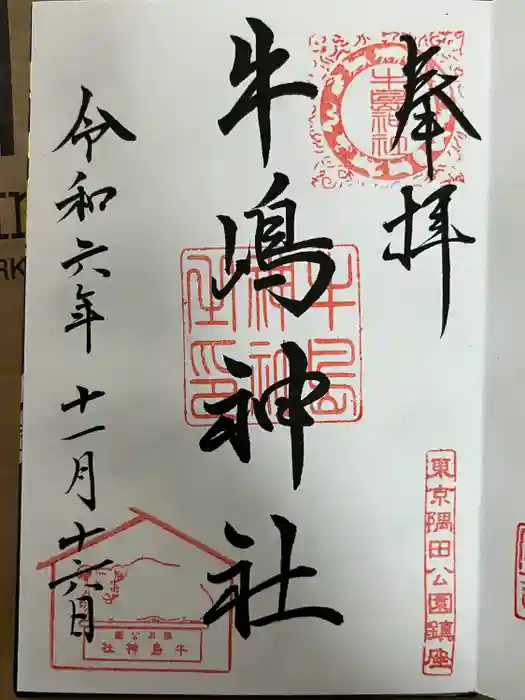 奉拝
牛嶋神社
令和六年 十一月十六日
牛嶋神社
牛島神社之印
東京隅田公園鎮座
隅田公園
牛島神社